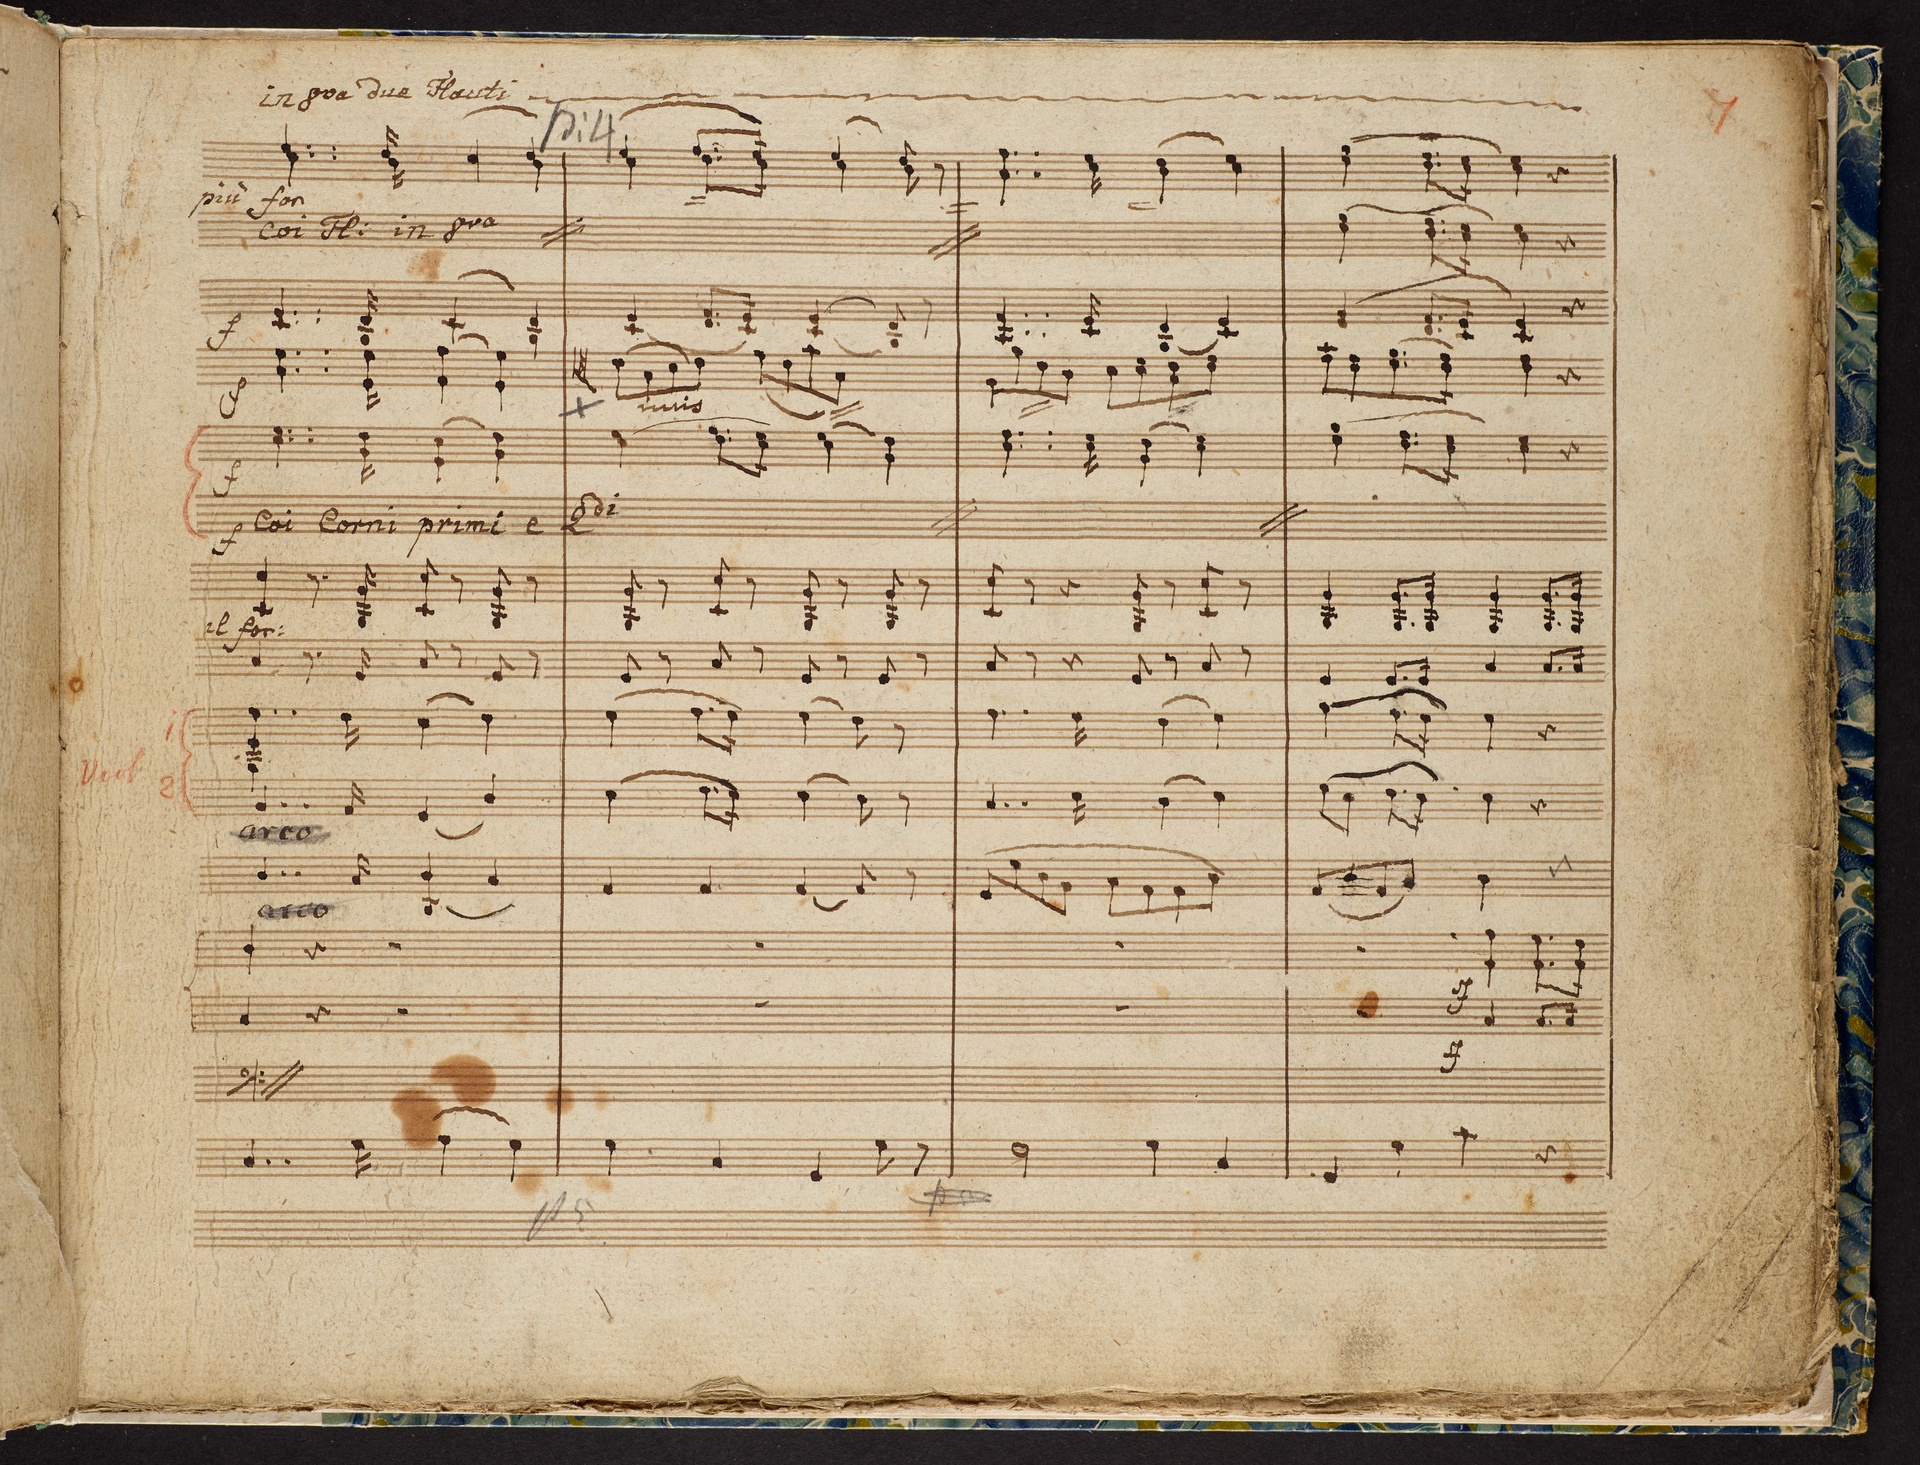 in 8va due Flauti
7
p: 4
più for
Coi Fl: in 8va
f
f
unis
f
f Coi Corni primi e 2di
il for:
1
Viol 2
arco
arco
ff
ff
p 5